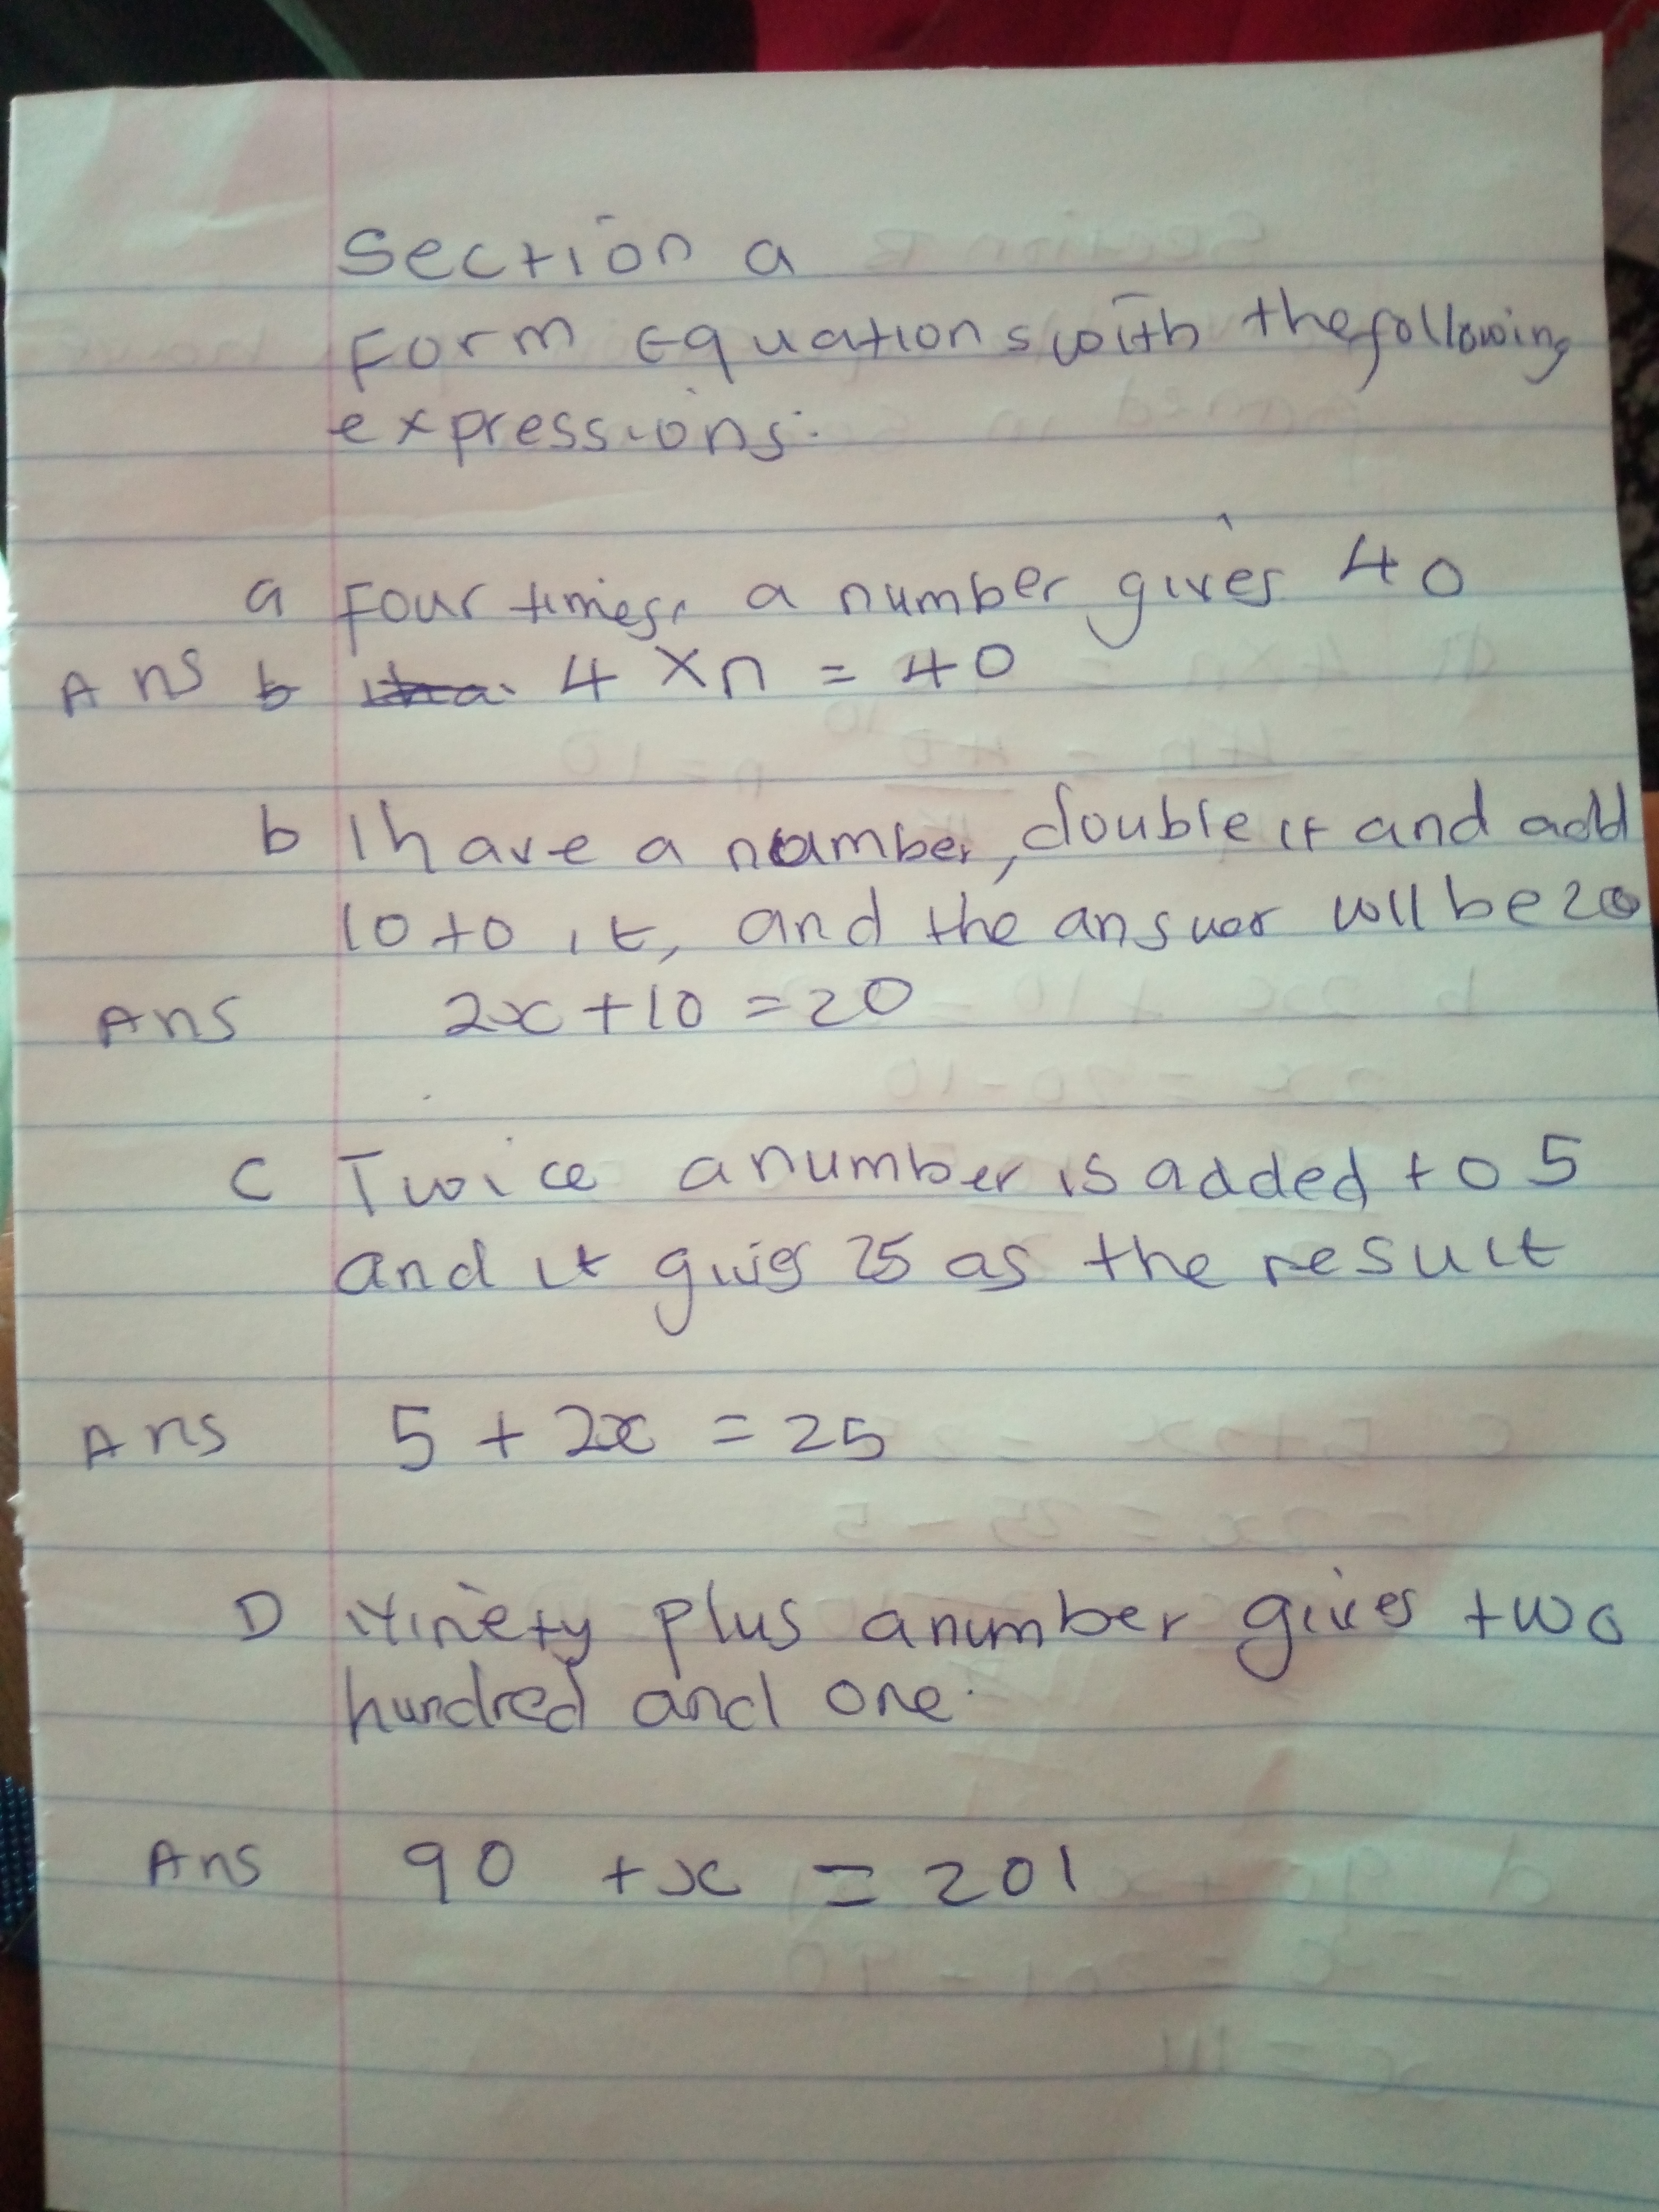 Section a
Form Equations with the following
expressions.
a Four times, a number gives 40
Ans b 4 × n = 40
b I have a number, double it and add
10 to it, and the answer will be 20
Ans 2x + 10 = 20
C Twice a number is added to 5
and it gives 25 as the result
Ans 5 + 2x = 25
D Ninety plus a number gives two
hundred and one.
Ans 90 + x = 201